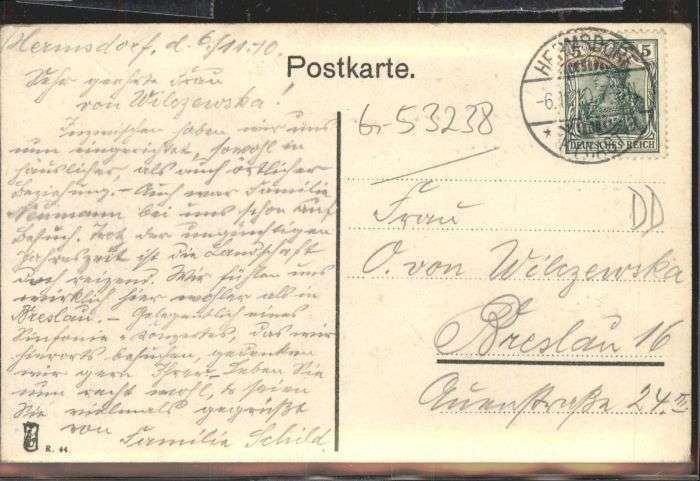 Hermsdorf, d. 6./11.10.
Sehr geehrte Frau
von Wilczewska!
Inzwischen haben wir uns
nun eingerichtet, sowohl in
häuslicher, als auch örtlicher
Beziehung. - Auch war Familie
Neumann bei uns schon auf
Besuch. Trotz der ungünstigen
Jahreszeit ist die Landschaft
doch reizend. Wir fühlen uns
wirklich hier wohler als in
Breslau. - Gelegentlich eines
Sinfonie-Konzertes, das wir
hierorts besuchen, gedenken
wir gern Ihrer. Leben Sie
nun recht wohl, & seien
Sie vielmals gegrüßt
von
Familie Schild.
R. 44.
Postkarte.
53238
DD
Frau
O. von Wilczewska
Breslau 16
Auenstraße 24. II
HERMSDORF
5 5
DEUTSCHES REICH